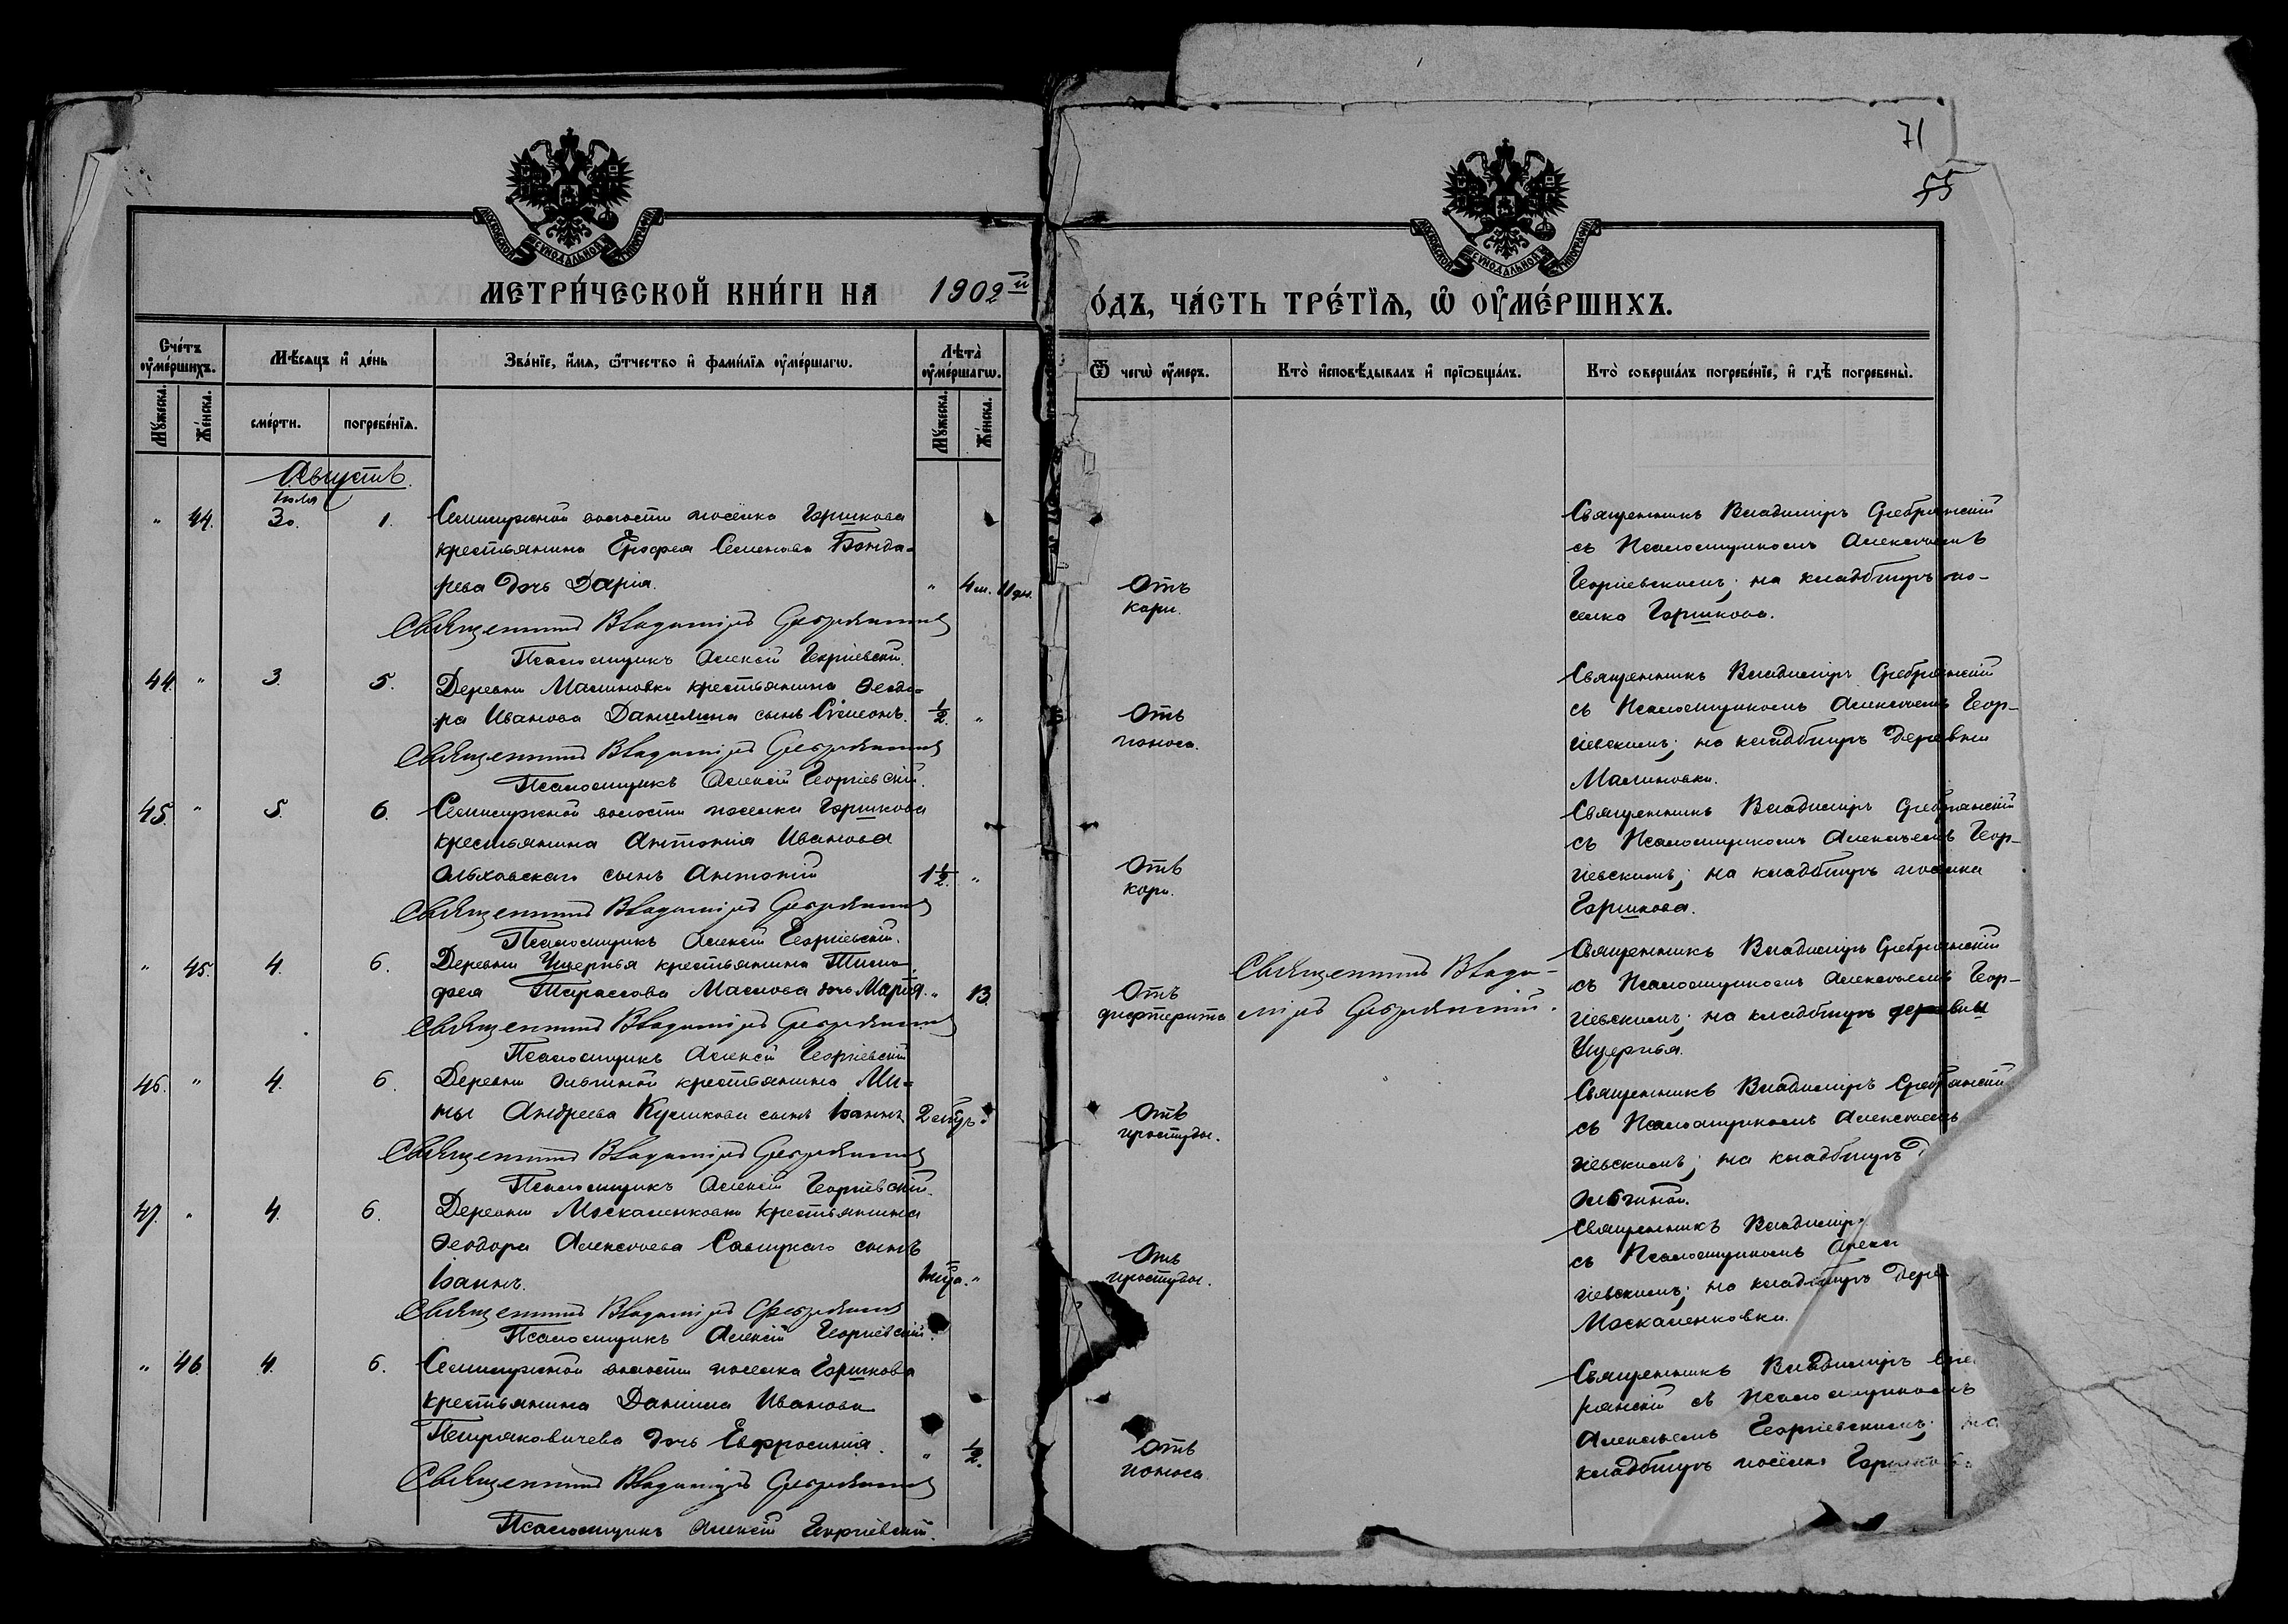 71
55
МОСКОВСКОЙ СѴНОДАЛЬНОЙ ТИПОГРАФІИ
МОСКОВСКОЙ СѴНОДАЛЬНОЙ ТИПОГРАФІИ
МЕТРИ́ЧЕСКОЙ КНИ́ГИ НА 1902й
О́ДЪ, ЧА́СТЬ ТРЕ́ТІѦ, Ѡ҆ ОУ҆МЕ́РШИХЪ.
Сче́тъ оу҆ме́ршихъ.
Мѣ́сѧцъ и҆ де́нь
Зва́нїе, и҆́мѧ, ѻ҆́тчество и҆ фами́лїѧ оу҆ме́ршагѡ.
Лѣ́та̀ оу҆ме́ршагѡ.
Ѿ чегѡ̀ оу҆́меръ.
Кто̀ и҆сповѣ́дывалъ и҆ прїѡбща́лъ.
Кто̀ соверша́лъ погребе́нїе, и҆ гдѣ̀ погребены̀.
Мꙋ́жеска. Же́нска.
сме́рти. погребе́нїѧ.
Мꙋ́жеска. Же́нска.
Августъ.
Іюля
" 44. 30. 1. Семиужной волости поселка Горшкова
крестьянина Ерофея Семенова Бонда-
рева дочь Дарія. " 4 м. 11 дн.
Священникъ Владиміръ Сребрянскій
Псаломщикъ Алексій Георгіевскій.
Отъ
кори.
Священникъ Владиміръ Сребрянскій
съ Псаломщикомъ Алексѣемъ
Георгіевскимъ; на кладбищѣ по-
селка Горшкова.
44. " 3. 5. Деревни Малиновки крестьянина Ѳеодо-
ра Иванова Данилина сынъ Сѵмеонъ. 1/2. "
Священникъ Владиміръ Сребрянскій
Псаломщикъ Алексій Георгіевскій.
Отъ
поноса.
Священникъ Владиміръ Сребрянскій
съ Псаломщикомъ Алексѣемъ Геор-
гіевскимъ; на кладбищѣ деревни
Малиновки.
45. " 5. 6. Семиужной волости поселка Горшкова
крестьянина Антонія Иванова
Ольховскаго сынъ Антоній 1 1/2. "
Священникъ Владиміръ Сребрянскій
Псаломщикъ Алексій Георгіевскій.
Отъ
кори.
Священникъ Владиміръ Сребрянскій
съ Псаломщикомъ Алексѣемъ Геор-
гіевскимъ; на кладбищѣ поселка
Горшкова.
" 45. 4. 6. Деревни Ущерпья крестьянина Тимо-
фея Тарасова Маслова дочь Марія. " 13.
Священникъ Владиміръ Сребрянскій
Псаломщикъ Алексій Георгіевскій
Отъ
дифтерита
Священникъ Влади-
міръ Сребрянскій.
Священникъ Владиміръ Сребрянскій
съ Псаломщикомъ Алексѣемъ Геор-
гіевскимъ; на кладбищѣ деревни
Ущерпья.
46. " 4. 6. Деревни Ольгиной крестьянина Ми-
ны Андреева сынъ Іоаннъ.
Священникъ Владиміръ Сребрянскій
Псаломщикъ Алексій Георгіевскій.
Отъ
простуды.
Священникъ Владиміръ Сребрянскій
съ Псаломщикомъ Алексѣемъ
гіевскимъ; на кладбищѣ
Ольгиной.
47. " 4. 6. Деревни Москаленковки крестьянина
Ѳеодора Алексѣева Савицкаго сынъ
Іоаннъ. "
Священникъ Владиміръ Сребрянскій
Псаломщикъ Алексій Георгіевскій.
Отъ
простуды.
Священникъ Владиміръ
съ Псаломщикомъ Алекс
гіевскимъ; на кладбищѣ дере
Москаленковки.
" 46. 4. 6. Семиужной волости поселка Горшкова
крестьянина Даніила Иванова
Петраковичева дочь Евфросинія. " 1/2.
Священникъ Владиміръ Сребрянскій
Псаломщикъ Алексій Георгіевскій.
Отъ
поноса.
Священникъ Владиміръ Среб
рянскій съ Псаломщикомъ
Алексѣемъ Георгіевскимъ; на
кладбищѣ посёлка Горшкова